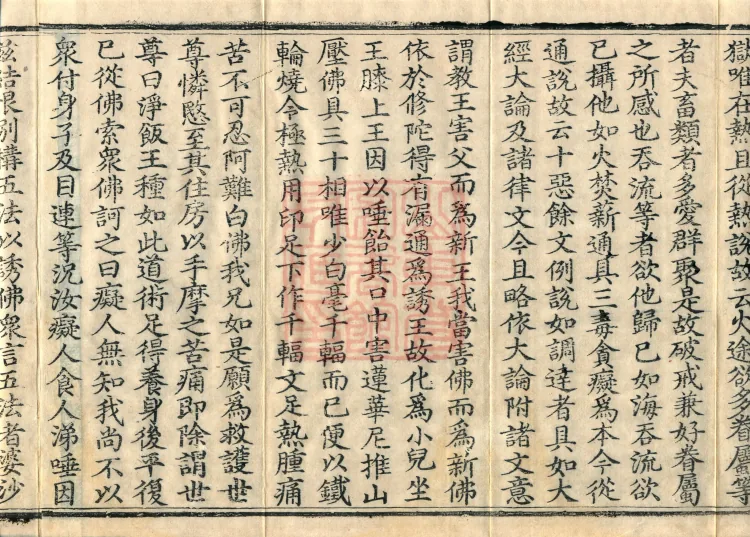 獄唯在熱且從熱說故云火途欲多眷屬等
者夫畜類者多愛群聚是故破戒兼好眷屬
之所感也吞流等者欲他歸已如海吞流欲
已攝他如火焚薪通具三毒貪癡為本今從
通說故云十惡餘文例說如調達者具如大
經大論及諸律文今且略依大論附諸文意
謂教王害父而為新王我當害佛而為新佛
依於修陀得有漏通為誘王故化為小兒坐
王膝上王因以唾飴其口中害蓮華尼推山
壓佛具三十相唯少白毫千輻而已便以鐵
輪燒令極熱用印足下作千輻文足熱腫痛
苦不可忍阿難白佛我兄如是願為救護世
尊憐愍至其住房以手摩之苦痛即除謂世
尊曰淨飯王種如此道術足得養身後平復
已從佛索眾佛訶之曰癡人無知我尚不以
眾付身子及目連等況汝癡人食人涕唾因
茲結恨別構五法以誘佛眾言五法者婆沙